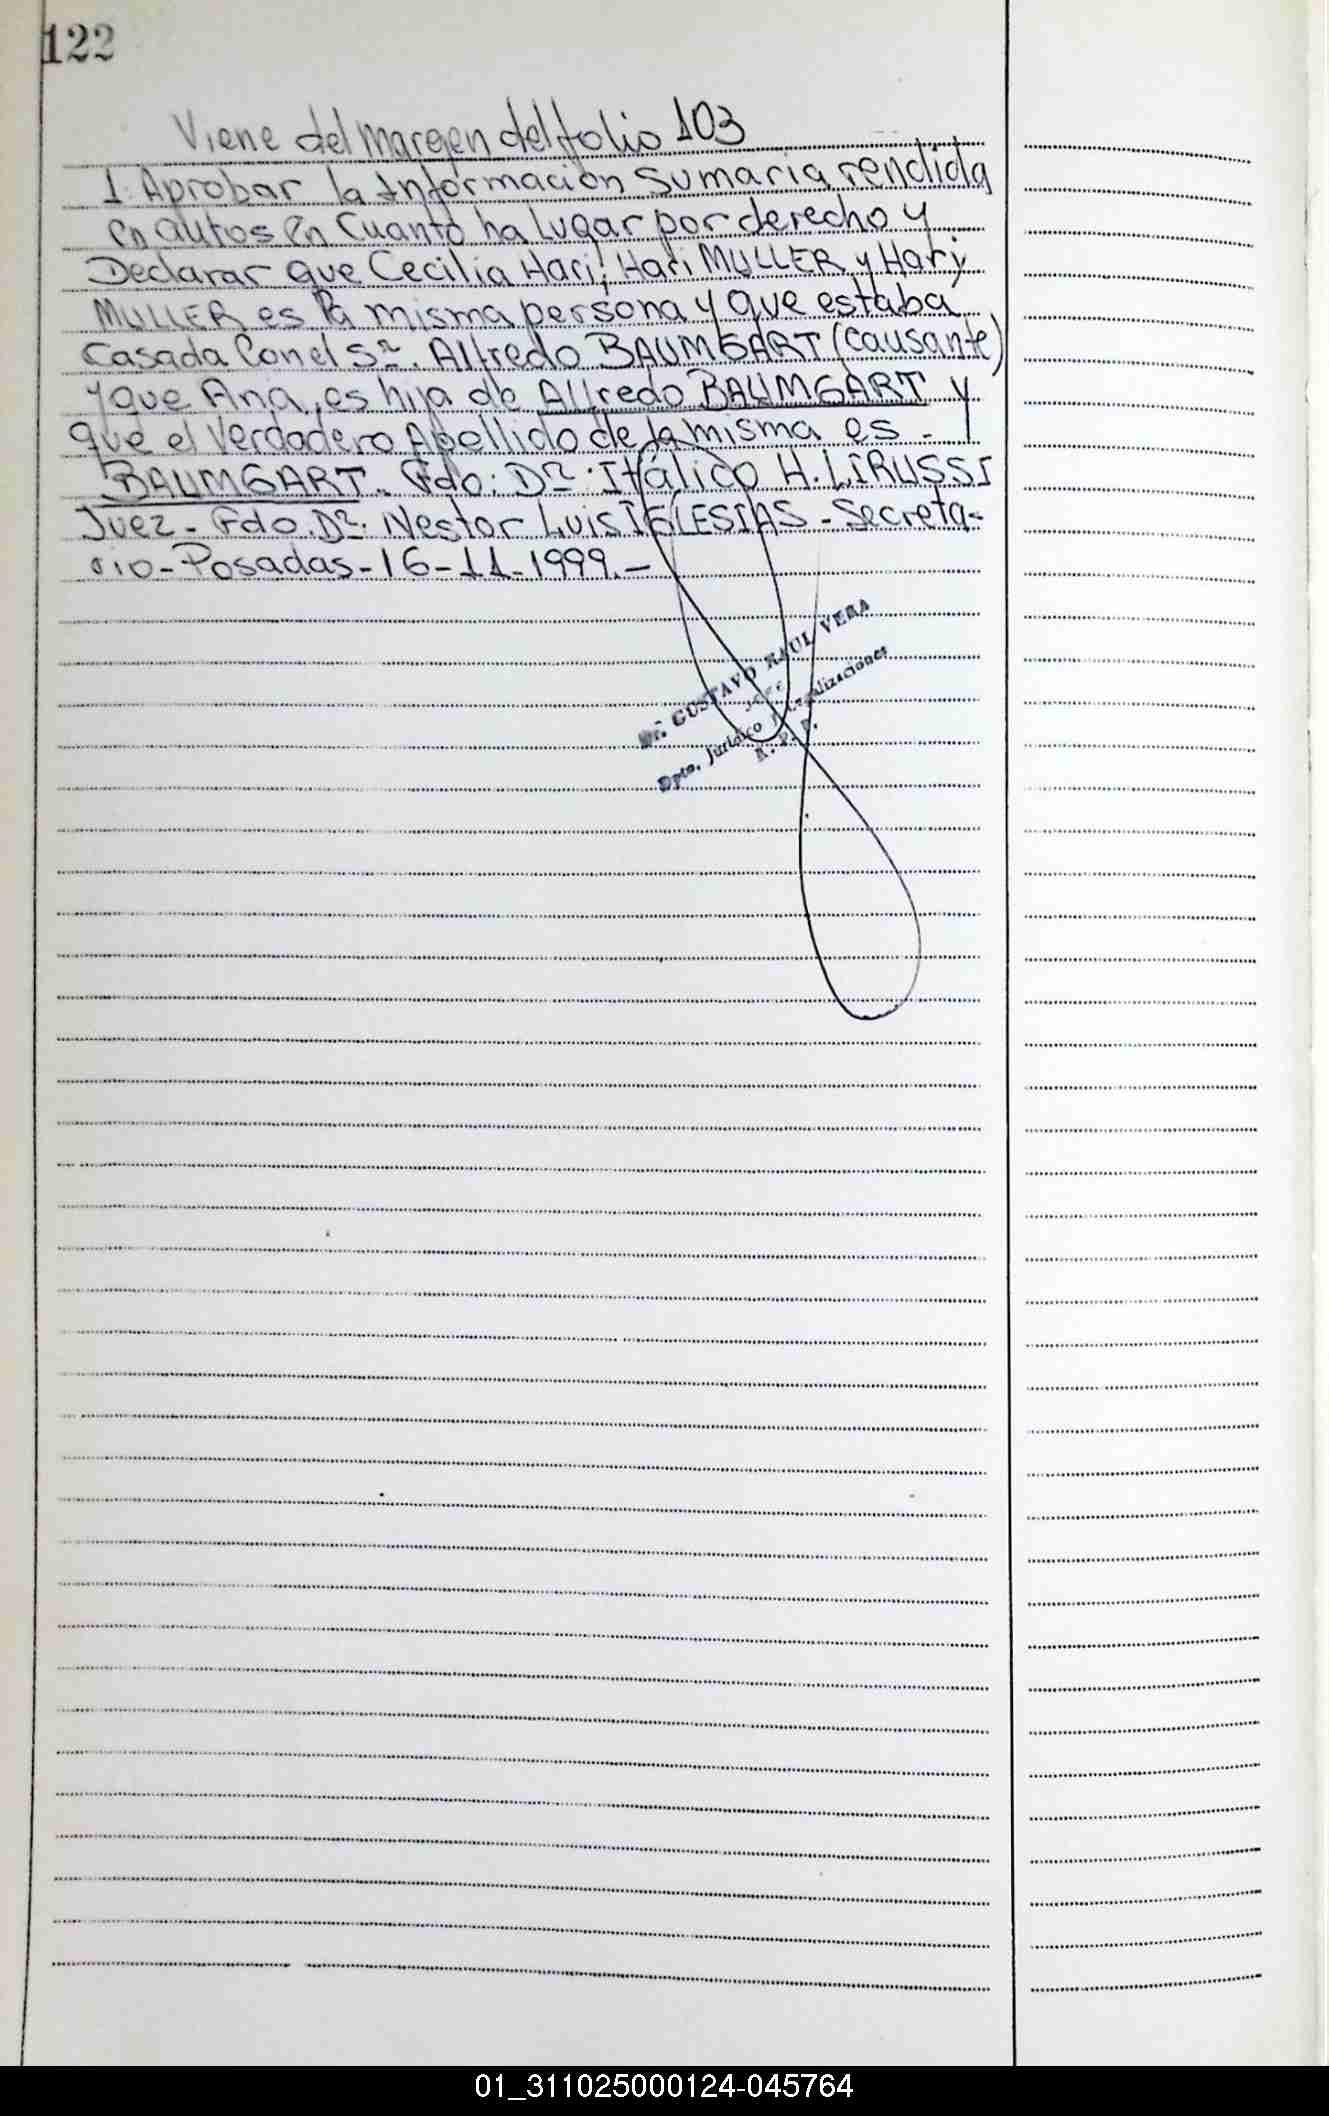 122
Viene del margen del folio 103
1. Aprobar la Información Sumaria rendida
en autos en Cuanto ha Lugar por derecho y
Declarar que Cecilia Hari; Hari MULLER y Hary
MULLER es la misma persona y que estaba
Casada Con el Sr. Alfredo BAUMGART (Causante)
y que Ana, es hija de Alfredo BAUMGART y
que el Verdadero Apellido de la misma es -
BAUMGART. Fdo: Dr. Itálico H. LIRUSSI
Juez - Fdo. Dr. Nestor Luis IGLESIAS - Secreta-
rio - Posadas - 16-11-1999.-
Dr. GUSTAVO RAUL VERA
JEFE
Dpto. Jurídico y Legalizaciones
R. P. P.
01_311025000124-045764